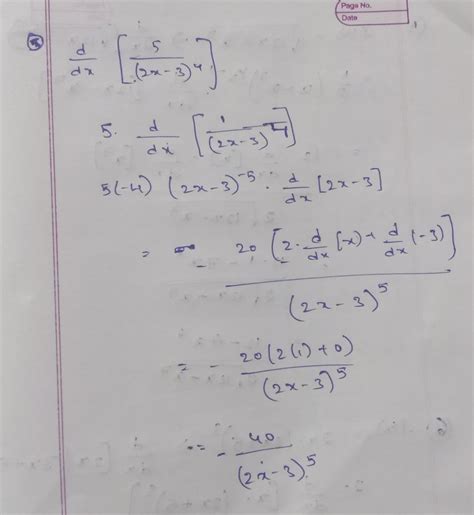 Page No.
Date
8
d/dx [5/(2x-3)^4]
5. d/dx [1/(2x-3)^4]
5(-4) (2x-3)^-5 . d/dx [2x-3]
= - 20 (2. d/dx [x] + d/dx (-3)]/(2x-3)^5
= - 20(2(1)+0)/(2x-3)^5
= - 40/(2x-3)^5